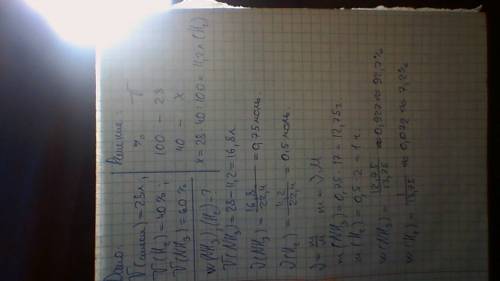 Дано:
V(смеси)=28л;
V(H2)=40%;
V(NH3)=60%
w(NH3),(H2)-?
Решение:
% V
100 - 28
40 - x
x=28·40:100=11,2л(H2)
V(NH3)=28-11,2=16,8л
ν(NH3)=16,8/22,4=0,75моль.
ν(H2)=11,2/22,4=0,5моль.
ν=m/M m=νM
m(NH3)=0,75·17=12,75г
m(H2)=0,5·2=1г
w(NH3)=12,75/13,75≈0,927≈92,7%
w(H2)=1/13,75≈0,072≈7,2%